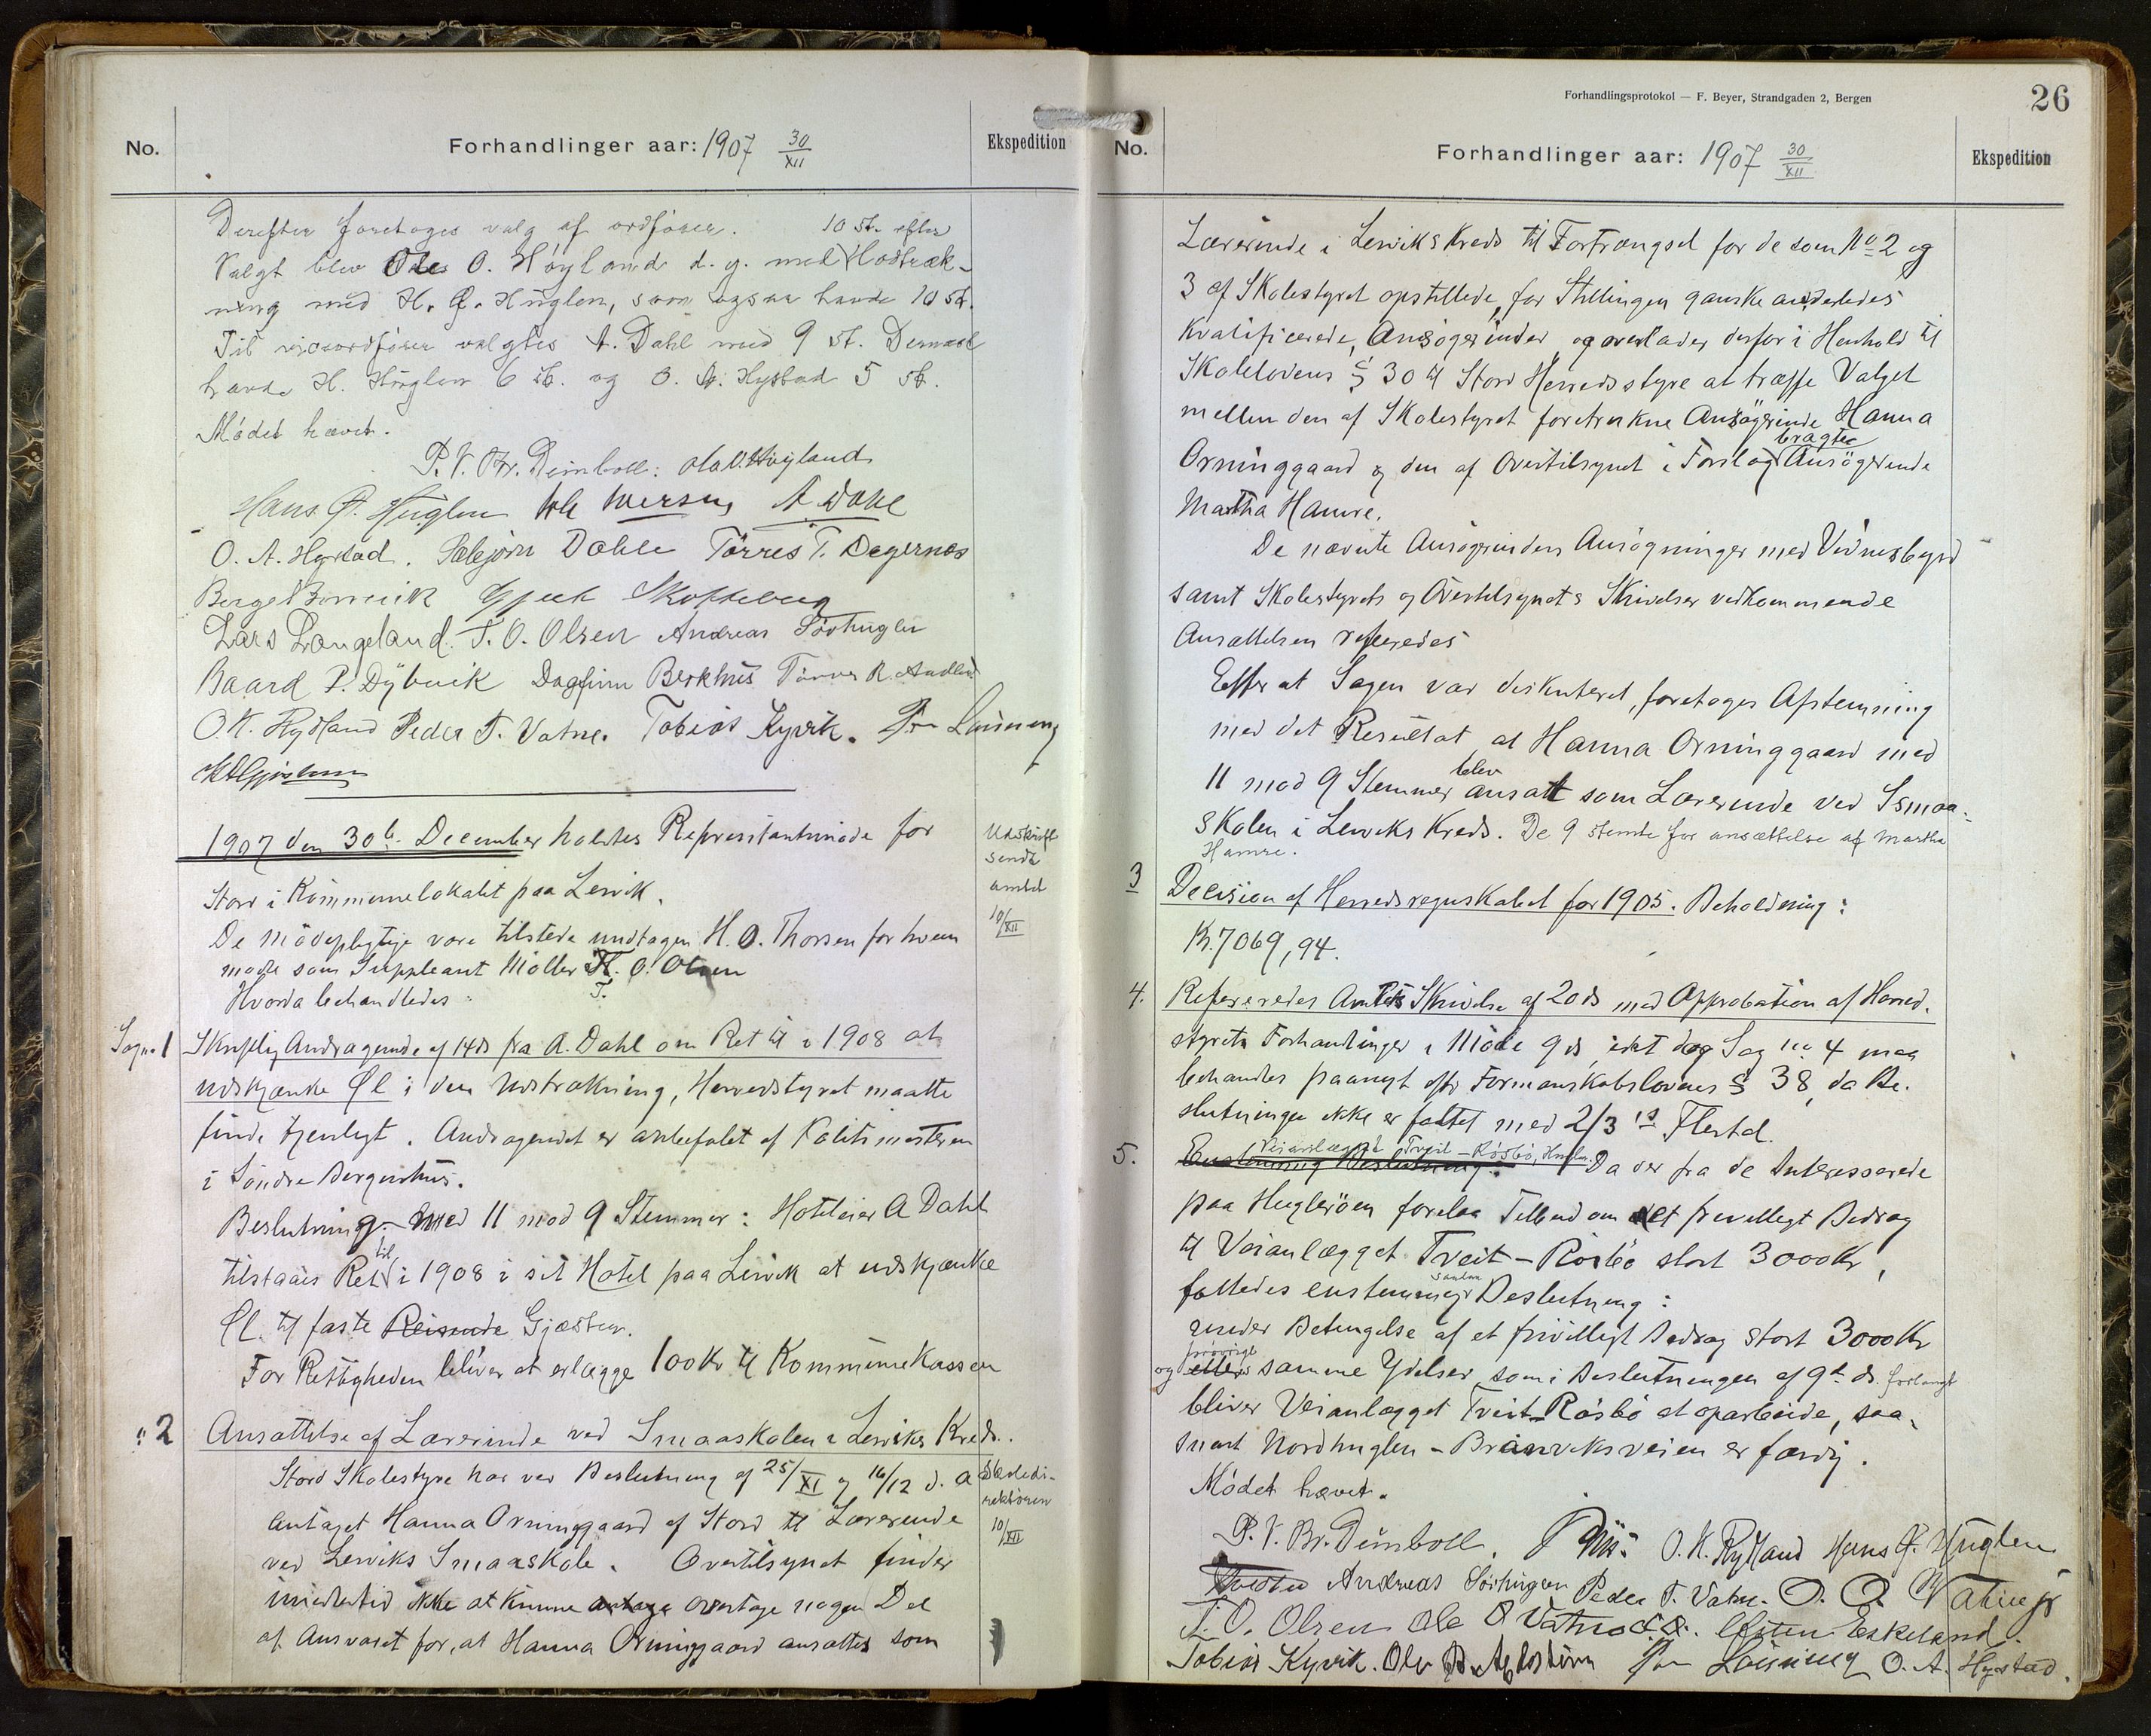 No.
Forhandlinger aar: 1907 30/XII
Ekspedition
Derefter foretoges valg af ordfører. 10 st. efter
Valgt blev Ole O. Høyland d. y. med Lodtræk-
ning med H. Q. Huglen, som ogsaa havde 10 st.
Til viceordfører valgtes A. Dahl med 9 st. Dernæst
havde H. Huglen 6 st. og O. A. Hystad 5 st.
Mødet hævet.
P. V. Br. Deinboll. Ola O. Høyland
Hans Q. Huglen Ole Iversen A Dahl
O. A. Hystad. Sæbjørn Dahle Tørres T. Digernes
Berge Gjert Skotteberg
Lars Langeland. T. O. Olsen Andreas Sørhuglen
Baard P. Dybvik Dagfinn Berkhus R.
O. K. Rydland Peder T. Vatne. Tobias Kyvik. Lønning
1907 den 30te December holdtes Representantmøde for
Stord i Kommunelokalet paa Lervik.
De mødepligtige vare tilstede undtagen H. O. Thorsen for hvem
mødte som Suppleant Møller T. O. Olsen
Hvorda behandledes:
Udskrift
sendt
amtet
10/XII
Sag no 1 Skriftlig Andragende af 14 ds fra A. Dahl om Ret til i 1908 at
udskjænke Øl i den Udstrækning, Herredstyret maatte
finde tjenligt. Andragendet er anbefalet af Politimesteren
i Søndre Bergenhus.
Beslutning. Med 11 mod 9 Stemmer: Hoteleier A Dahl
tilstaaes Ret til i 1908 i sit Hotel paa Lervik at udskjænke
Øl til faste Reisende Gjæster.
For Rettigheden bliver at erlægge 100 Kr til Kommunekassen
" 2 Ansættelse af Lærerinde ved Smaaskolen i Lerviks Kreds.
Stord Skolestyre har ved Beslutning af 25/XI og 16/12 d. a
antaget Hanna Orninggaard af Stord til Lærerinde
ved Lerviks Smaaskole. Overtilsynet finder
imidlertid ikke at kunne antage overtage nogen Del
af Ansvaret for, at Hanna Orninggaard ansættes som
Skoledi-
rektøren
10/XII
Forhandlingsprotokol — F. Beyer, Strandgaden 2, Bergen
26
No.
Forhandlinger aar: 1907 30/XII
Ekspedition
Lærerinde i Lerviks Kreds til Fortrængsel for de som No 2 og
3 af Skolestyret opstillede, for Stillingen ganske anderledes
kvalificerede, Ansøgerinder, og overlader derfor i Henhold til
Skolelovens § 30 til Stord Herredsstyre at træffe Valget
mellem den af Skolestyret foretrukne Ansøgerinde Hanna
Orninggaard og den af Overtilsynet i Forslag bragte Ansøgerinde
Martha Hamre.
De nævnte Ansøgerinders Ansøgninger med Vidnesbyrd
samt Skolestyrets og Overtilsynets Skrivelser vedkommende
Ansættelsen refereredes
Efter at Sagen var diskuteret, foretoges Afstemning
med det Resultat at Hanna Orninggaard med
11 mod 9 Stemmer blev ansatt som Lærerinde ved Smaa-
skolen i Lerviks Kreds. De 9 stemte for ansættelse af Martha
Hamre.
3 Decision af Herredsregnskabet for 1905. Beholdning:
Kr. 7069,94.
4. Refereredes Amtets Skrivelse af 20 ds med Approbation af Herred-
styrets Forhandlinger i Møde 9 ds, idet dog Sag no 4 maa
behandles paanyt efter Formandskabslovens § 38, da Be-
slutningen ikke er fattet med 2/3 's Flertal.
5. Enstemmig Beslutning: Veianlægget Tveit - Røsbø, Huglen. Da der fra de Interesserede
paa Huglerøen forelaa Tilbud om et frivilligt Bidrag
til Veianlægget Tveit - Røsbø stort 3000 Kr,
fattedes enstemmig saadan Beslutning:
under Betingelse af et frivilligt Bidrag stort 3000 Kr
og forøvrigt ellers samme Ydelser som i Beslutningen af 9de ds. forlangt
bliver Veianlægget Tveit - Røsbø at oparbeide, saa-
snart Nordhuglen - Brandviksveien er færdig.
Mødet hævet.
P. V. Br. Deinboll. O. K. Rydland Hans Q. Huglen
Andreas Sørhuglen Peder T. Vatne. O. O. Vatne jr
T. O. Olsen Ole O Vatne Østen Eskeland.
Tobias Kyvik. Lønning O. A. Hystad.